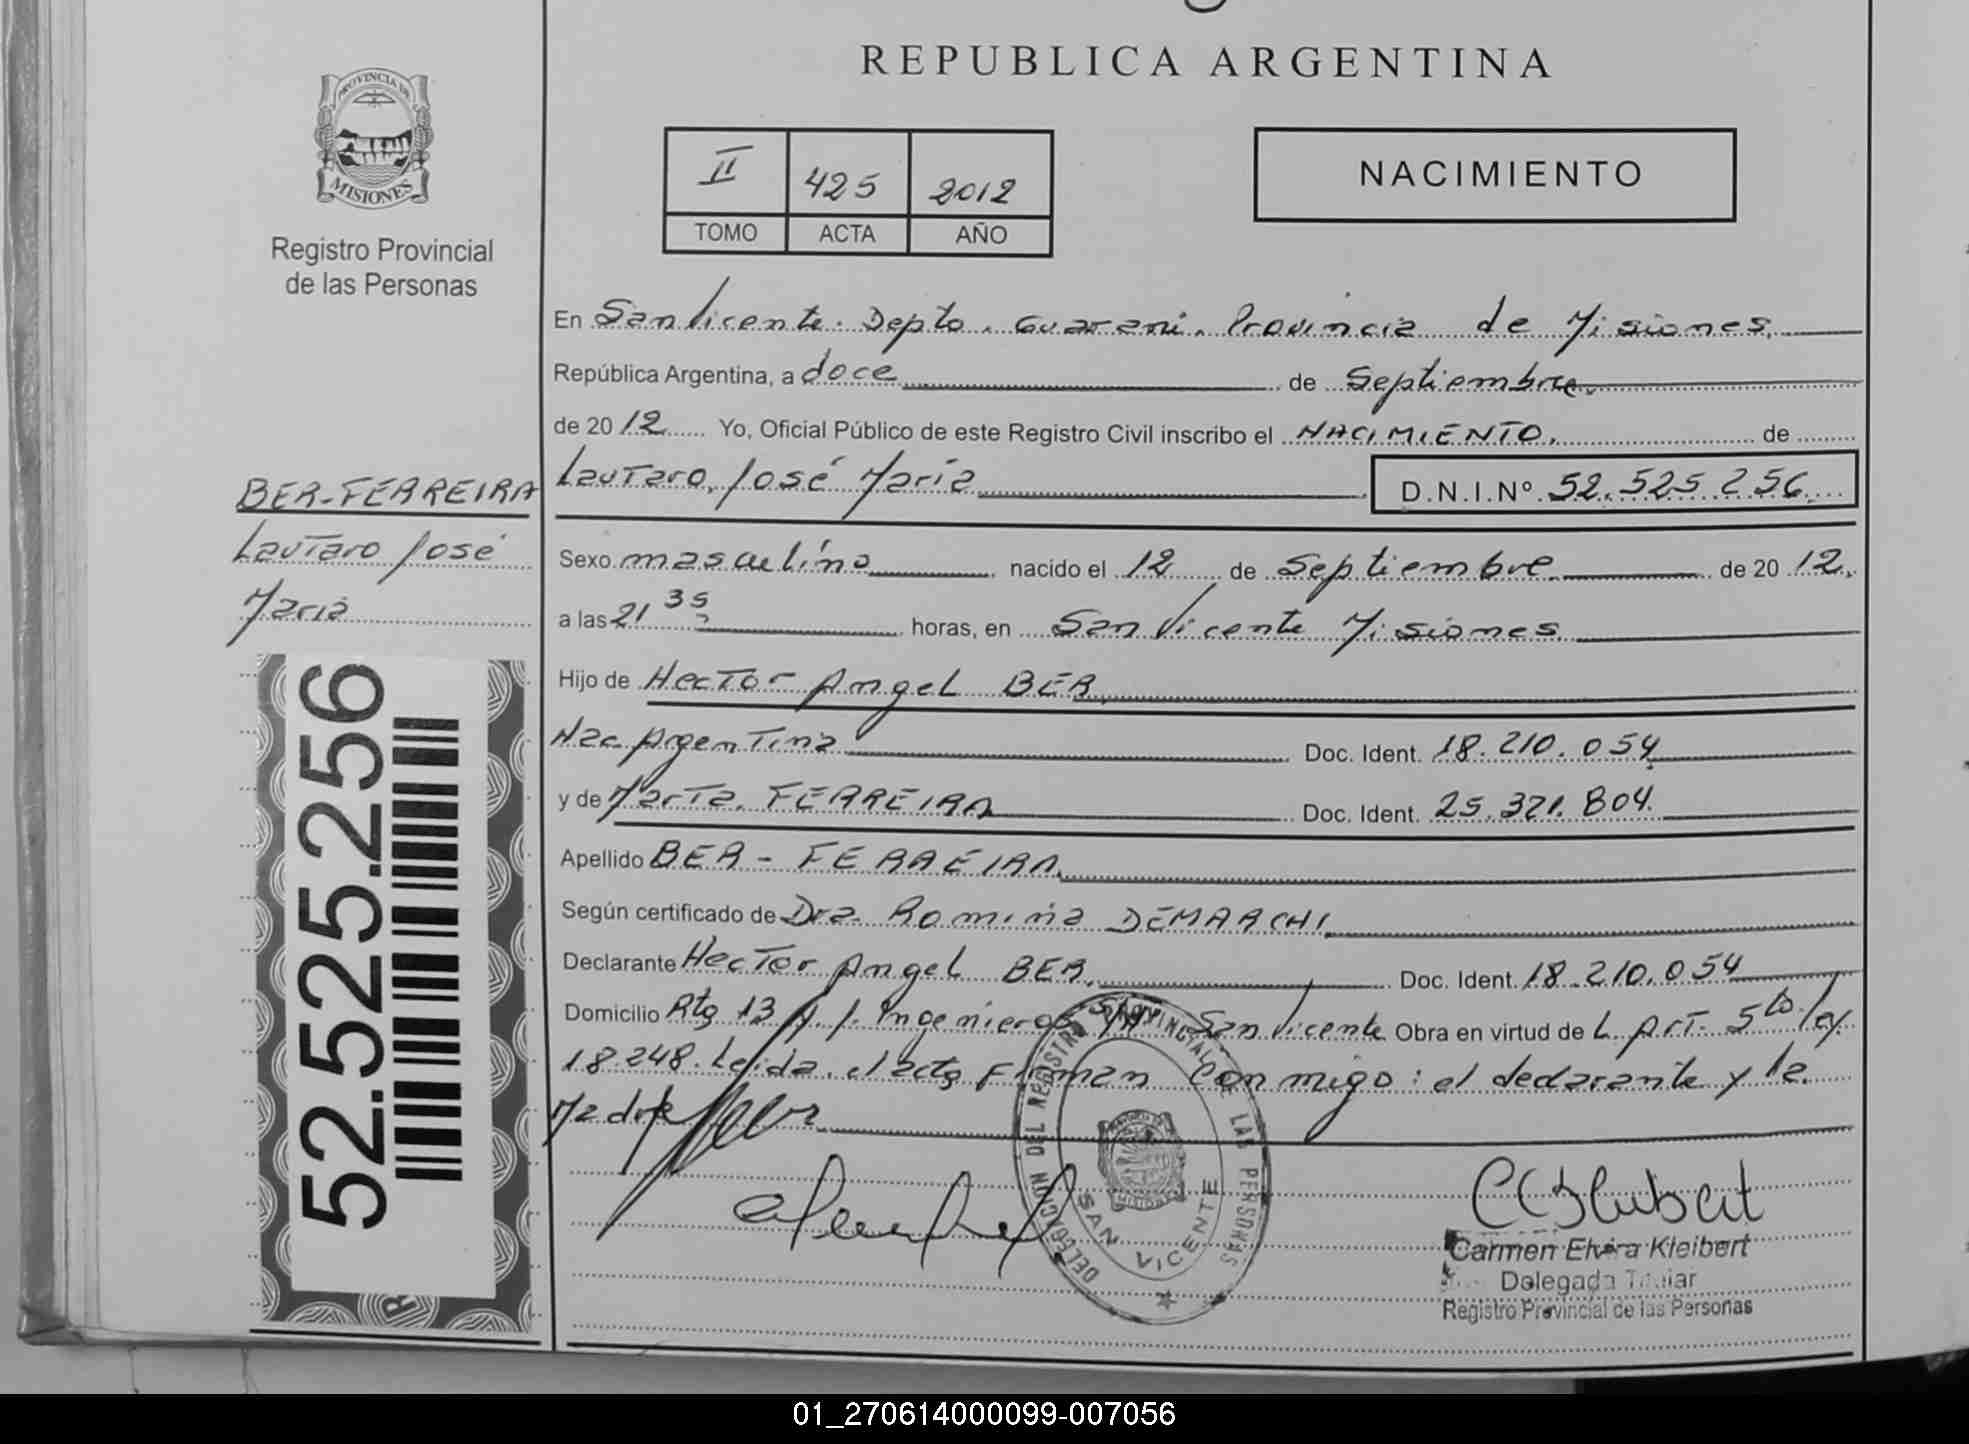 REPUBLICA ARGENTINA
PROVINCIA DE
MISIONES
Registro Provincial
de las Personas
II 425 2012
TOMO ACTA AÑO
NACIMIENTO
En San Vicente. Depto. Guarani. Provincia de Misiones.
República Argentina, a doce de Septiembre.
de 20 12 Yo, Oficial Público de este Registro Civil inscribo el NACIMIENTO. de
Lautaro José María D.N.I.Nº 52.525.256
BER-FERREIRA
Lautaro José
María
Sexo masculino nacido el 12 de Septiembre de 20 12.
a las 21 35 horas, en San Vicente Misiones
Hijo de Hector Angel BER
Nac Argentina Doc. Ident. 18.210.054
y de Marta FERREIRA Doc. Ident. 25.321.804.
Apellido BER - FERREIRA
Según certificado de Dra. Romina DEMARCHI
Declarante Hector Angel BER. Doc. Ident. 18.210.054
Domicilio Rta 13 San Vicente Obra en virtud de L Art. 5to ley.
18.248. Leida el acta Firman Conmigo: el declarante y la
Madre
52.525.256
DELEGACIÓN DEL REGISTRO PROVINCIAL DE LAS PERSONAS
MISIONES
SAN VICENTE
Carmen Elvira Kleibert
Delegada Titular
Registro Provincial de las Personas
R
01_270614000099-007056